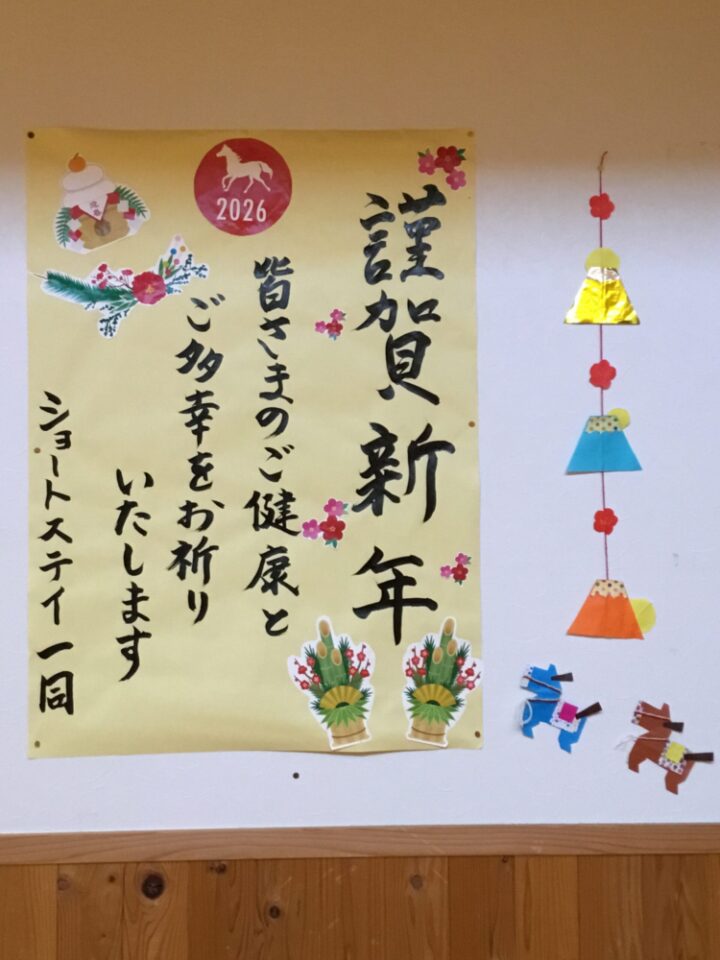 2026
謹賀新年
皆さまのご健康と
ご多幸をお祈り
いたします
ショートステイ一同